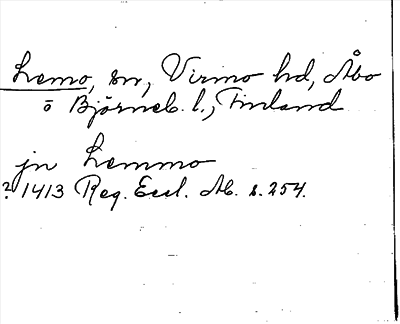 Lemo, sn, Virmo hd, Åbo
o Björneb. l., Finland
jn Lemmo
? 1413 Reg. Eccl. Ab. s. 254.